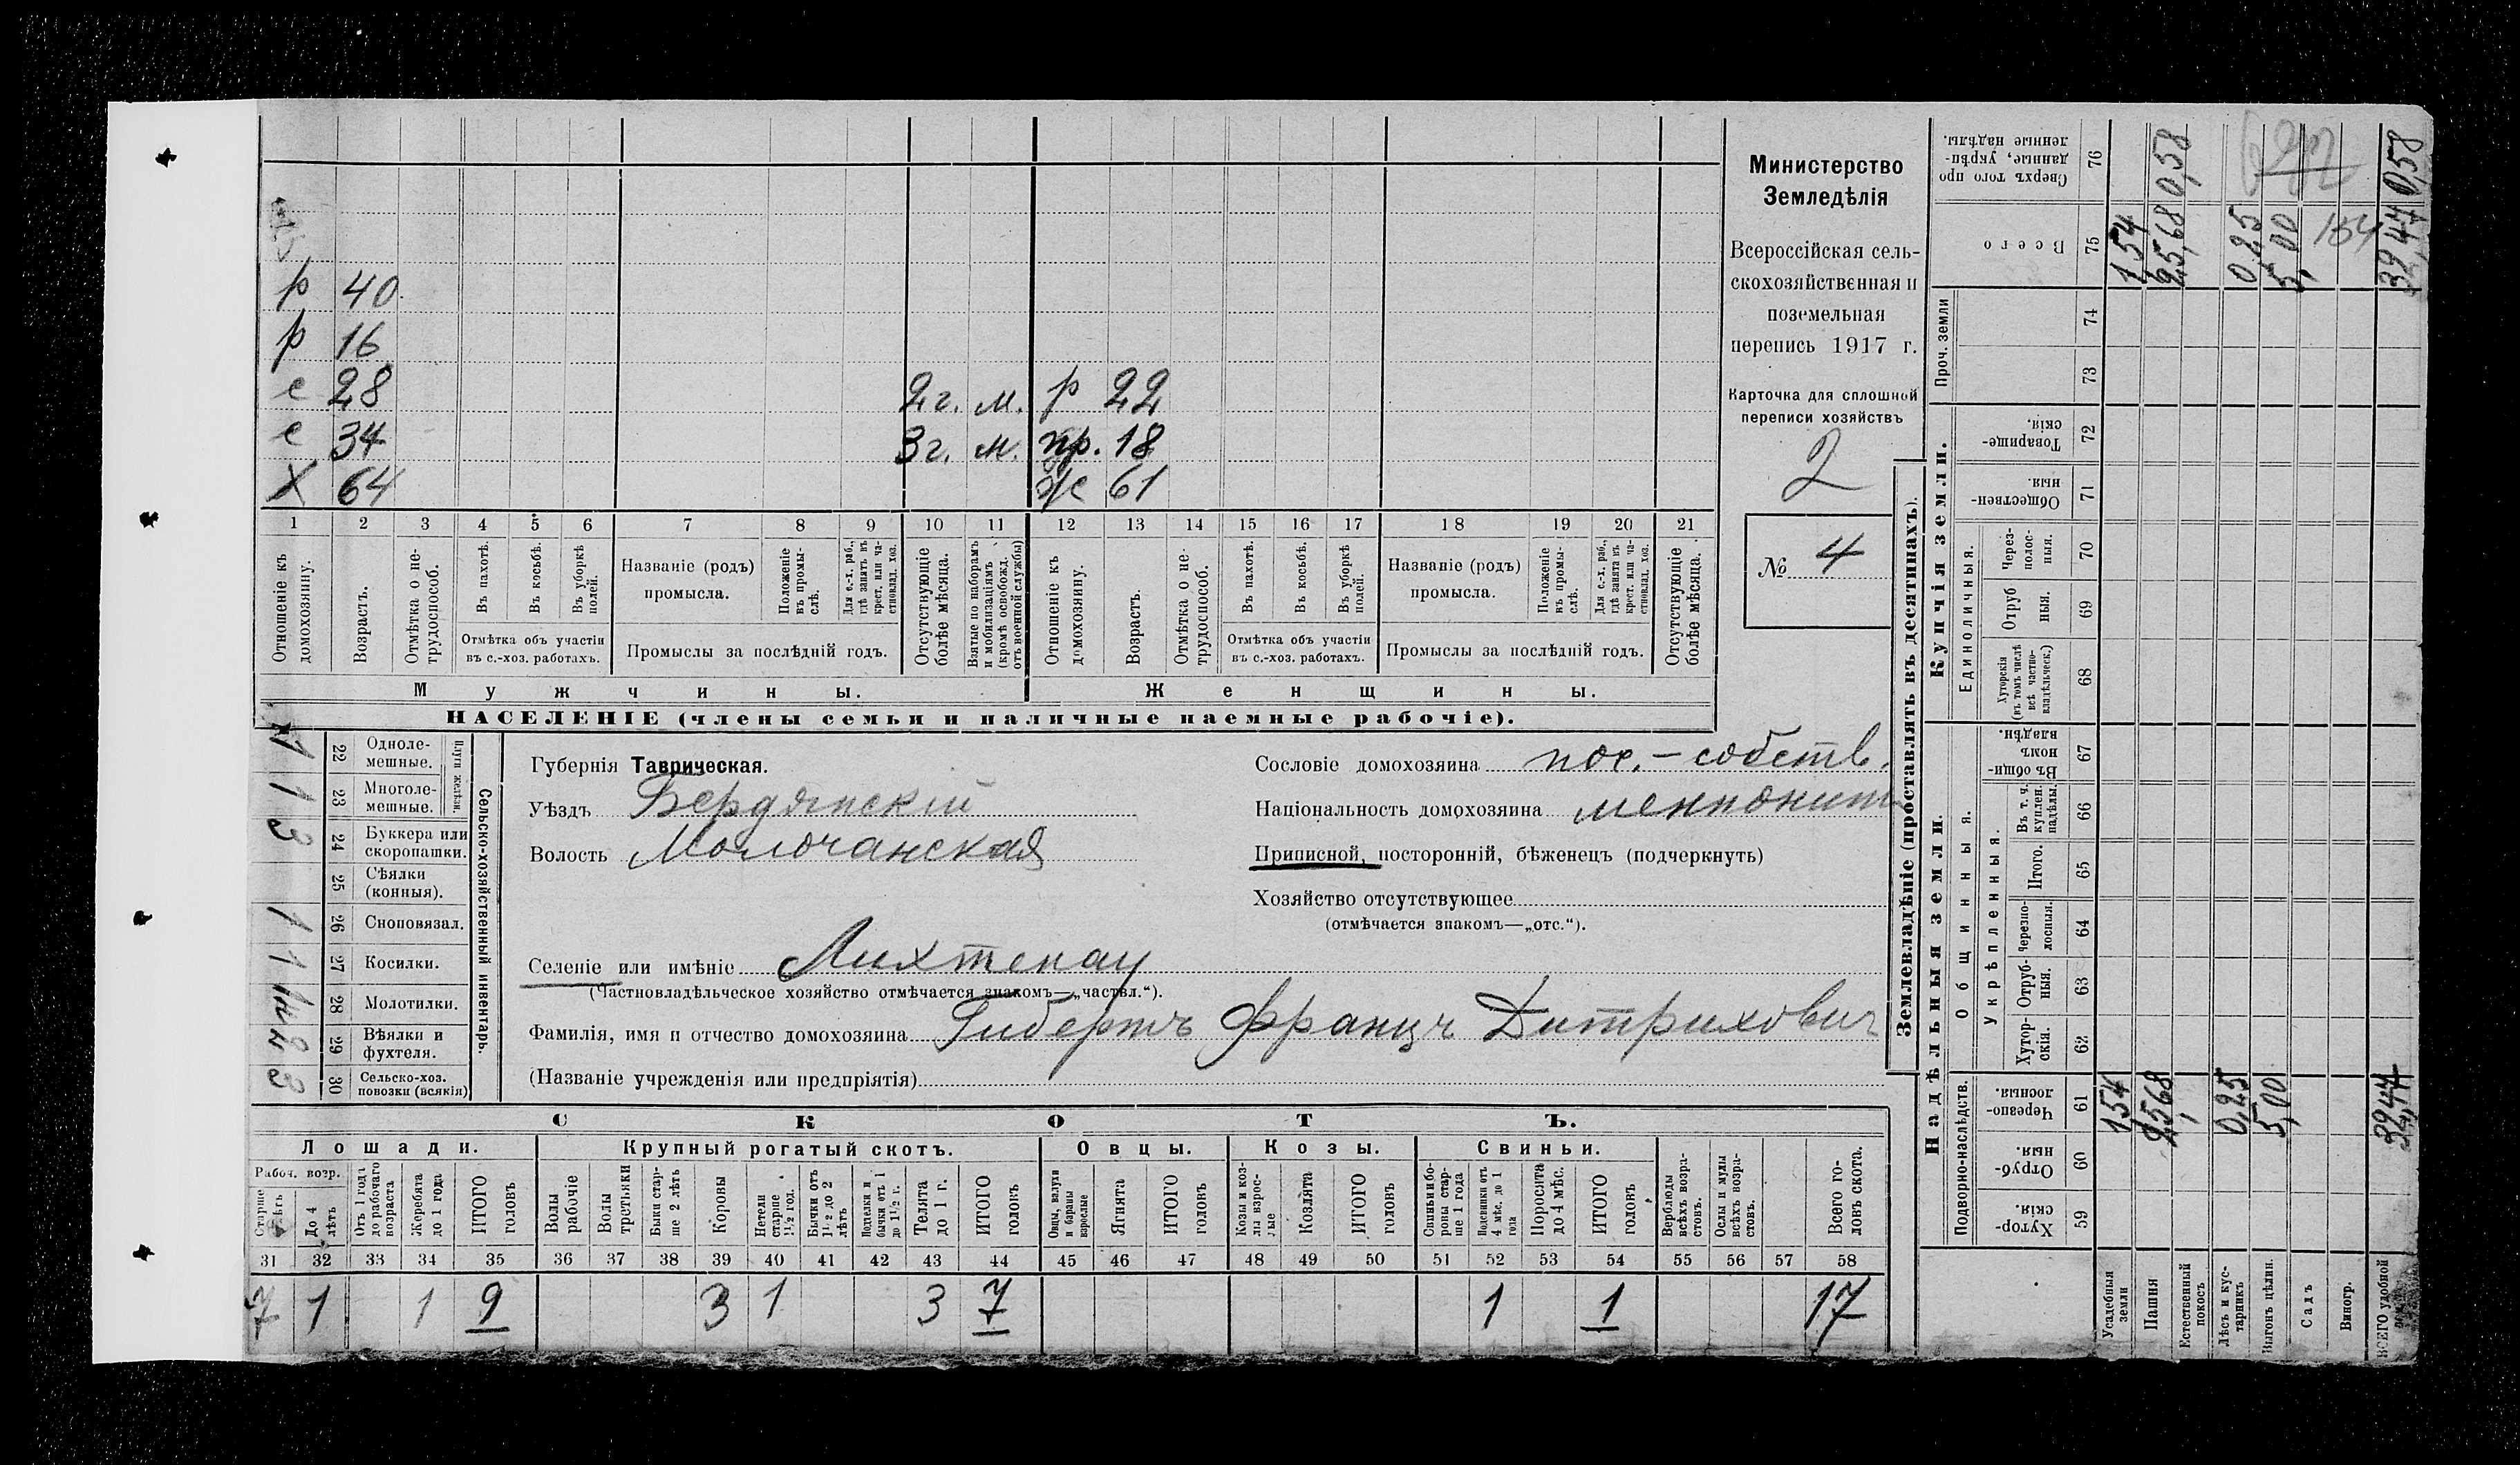 р 40.
р 16
с 28 2 г. м. р 22
с 34 3 г. м. пр. 18
Х 64 ж 61
1 2 3 4 5 6 7 8 9 10 11 12 13 14 15 16 17 18 19 20 21
Отношеніе къ домохозяину.
Возрастъ.
Отмѣтка о не-трудоспособ.
Въ пахотѣ.
Въ косьбѣ.
Въ уборкѣ полей.
Отмѣтка объ участіи въ с.-хоз. работахъ.
Названіе (родъ) промысла.
Положеніе въ промы-слѣ.
Для с.-х. раб., гдѣ занятъ въ крест. или ча-стновлад. хоз.
Промыслы за послѣдній годъ.
Отсутствующіе болѣе мѣсяца.
Взятые по наборамъ и мобилизаціямъ (кромѣ освобожд. отъ военной службы)
Отношеніе къ домохозяину.
Возрастъ.
Отмѣтка о не-трудоспособ.
Въ пахотѣ.
Въ косьбѣ.
Въ уборкѣ полей.
Отмѣтка объ участіи въ с.-хоз. работахъ.
Названіе (родъ) промысла.
Положеніе въ промы-слѣ.
Для с.-х. раб., гдѣ занята въ крест. или ча-стновлад. хоз.
Промыслы за послѣдній годъ.
Отсутствующіе болѣе мѣсяца.
Мужчины. Женщины.
НАСЕЛЕНІЕ (члены семьи и наличные наемные рабочіе).
Министерство
Земледѣлія
Всероссійская сель-
скохозяйственная и
поземельная
перепись 1917 г.
Карточка для сплошной
переписи хозяйствъ
2
№ 4
Сельско-хозяйственный инвентарь.
Плуги желѣзн.
22 Одноле-мешные. 1
23 Многоле-мешные. 1
24 Буккера или скоропашки. 3
25 Сѣялки (конныя).
26 Сноповязал. 1
27 Косилки. 1
28 Молотилки.
29 Вѣялки и фухтеля. 2
30 Сельско-хоз. повозки (всякія) 3
Губернія Таврическая.
Уѣздъ Бердянскій
Волость Молочанская
Сословіе домохозяина пос.-собств.
Національность домохозяина меннонит
Приписной, посторонній, бѣженецъ (подчеркнуть)
Хозяйство отсутствующее
(отмѣчается знакомъ—„отс.“).
Селеніе или имѣніе Лихтенау
(Частновладѣльческое хозяйство отмѣчается знакомъ—„частвл.“).
Фамилія, имя и отчество домохозяина Гибертъ Францъ Дитрихович
(Названіе учрежденія или предпріятія)
СКОТЪ.
Лошади. Крупный рогатый скотъ. Овцы. Козы. Свиньи.
Рабоч. возр.
Старше 4 лѣтъ
До 4 лѣтъ
Отъ 1 года до рабочаго возраста
Жеребята до 1 года
ИТОГО головъ
Волы рабочіе
Волы третьяки
Быки стар-ше 2 лѣтъ
Коровы
Нетели старше 1½ год.
Бычки отъ 1½ до 2 лѣтъ
Подтелки и бычки отъ 1 до 1½ г.
Телята до 1 г.
ИТОГО головъ
Овцы, валухи и бараны взрослые
Ягнята
ИТОГО головъ
Козы и коз-лы взрос-лые
Козлята
ИТОГО головъ
Свиньи и бо-ровы стар-ше 1 года
Подсвинки отъ 4 мѣс. до 1 года
Поросята до 4 мѣс.
ИТОГО головъ
Верблюды всѣхъ возра-стовъ.
Ослы и мулы всѣхъ возра-стовъ.
Всего го-ловъ скота.
31 32 33 34 35 36 37 38 39 40 41 42 43 44 45 46 47 48 49 50 51 52 53 54 55 56 57 58
7 1 1 9 3 1 3 7 1 1 17
Землевладѣніе (проставлять въ десятинахъ).
Надѣльныя земли. Купчія земли. Проч. земли
Подворно-наслѣдств. Общинныя. Единоличныя.
Укрѣпленныя.
Хутор-скія. 59
Отруб-ныя. 60
Черезпо-лосныя. 61
Хутор-скія. 62
Отруб-ныя. 63
Черезпо-лосныя. 64
Итого. 65
Въ т. ч. куплен. надѣлы. 66
Въ общин-номъ владѣн. 67
Хуторскія (въ томъ числѣ всѣ частно-владѣльческ.) 68
Отруб ныя. 69
Через-полос-ныя. 70
Обществен-ныя. 71
Товарище-скія. 72
73
74
Всего 75
Сверхъ того про данные, укрѣп-ленные надѣлы. 76
Усадебныя земли 1,54 1,54
Пашня 25,68 25,68 0,58
Естественный покосъ
Лѣсъ и кус-тарникъ 0,25 0,25
Выгонъ цѣлин. 5,00 5,00
Садъ
Виногр. 164
ВСЕГО удобной 32,47 32,47 0,58